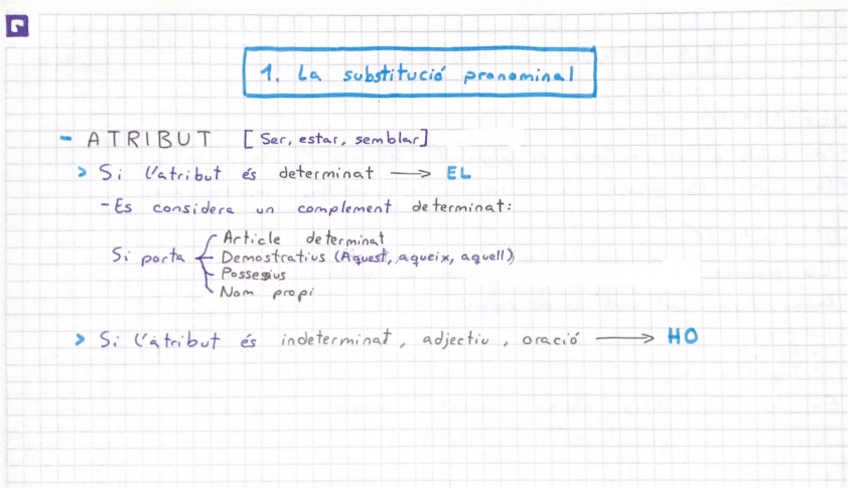 1. La substitució pronominal
- ATRIBUT [Ser, estar, semblar]
> Si l'atribut és determinat → EL
- Es considera un complement determinat:
Si porta
Article determinat
Demostratius (Aquest, aqueix, aquell)
Possesius
Nom propi
> Si l'atribut és indeterminat, adjectiu, oració → HO